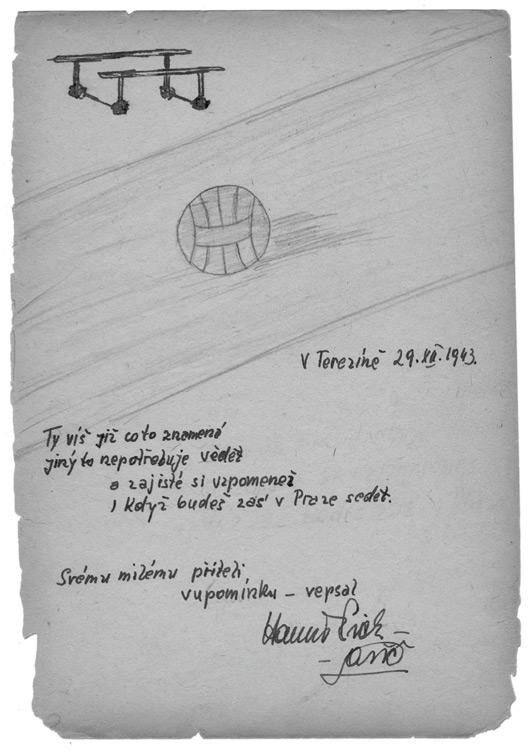 V Terezíně 29.XII.1943.
Ty víš již co to znamená
jiný to nepotřebuje vědět
a zajisté si vzpomeneš
i když budeš zas v Praze sedět.
Svému milému příteli
v upomínku – vepsal
Hanuš